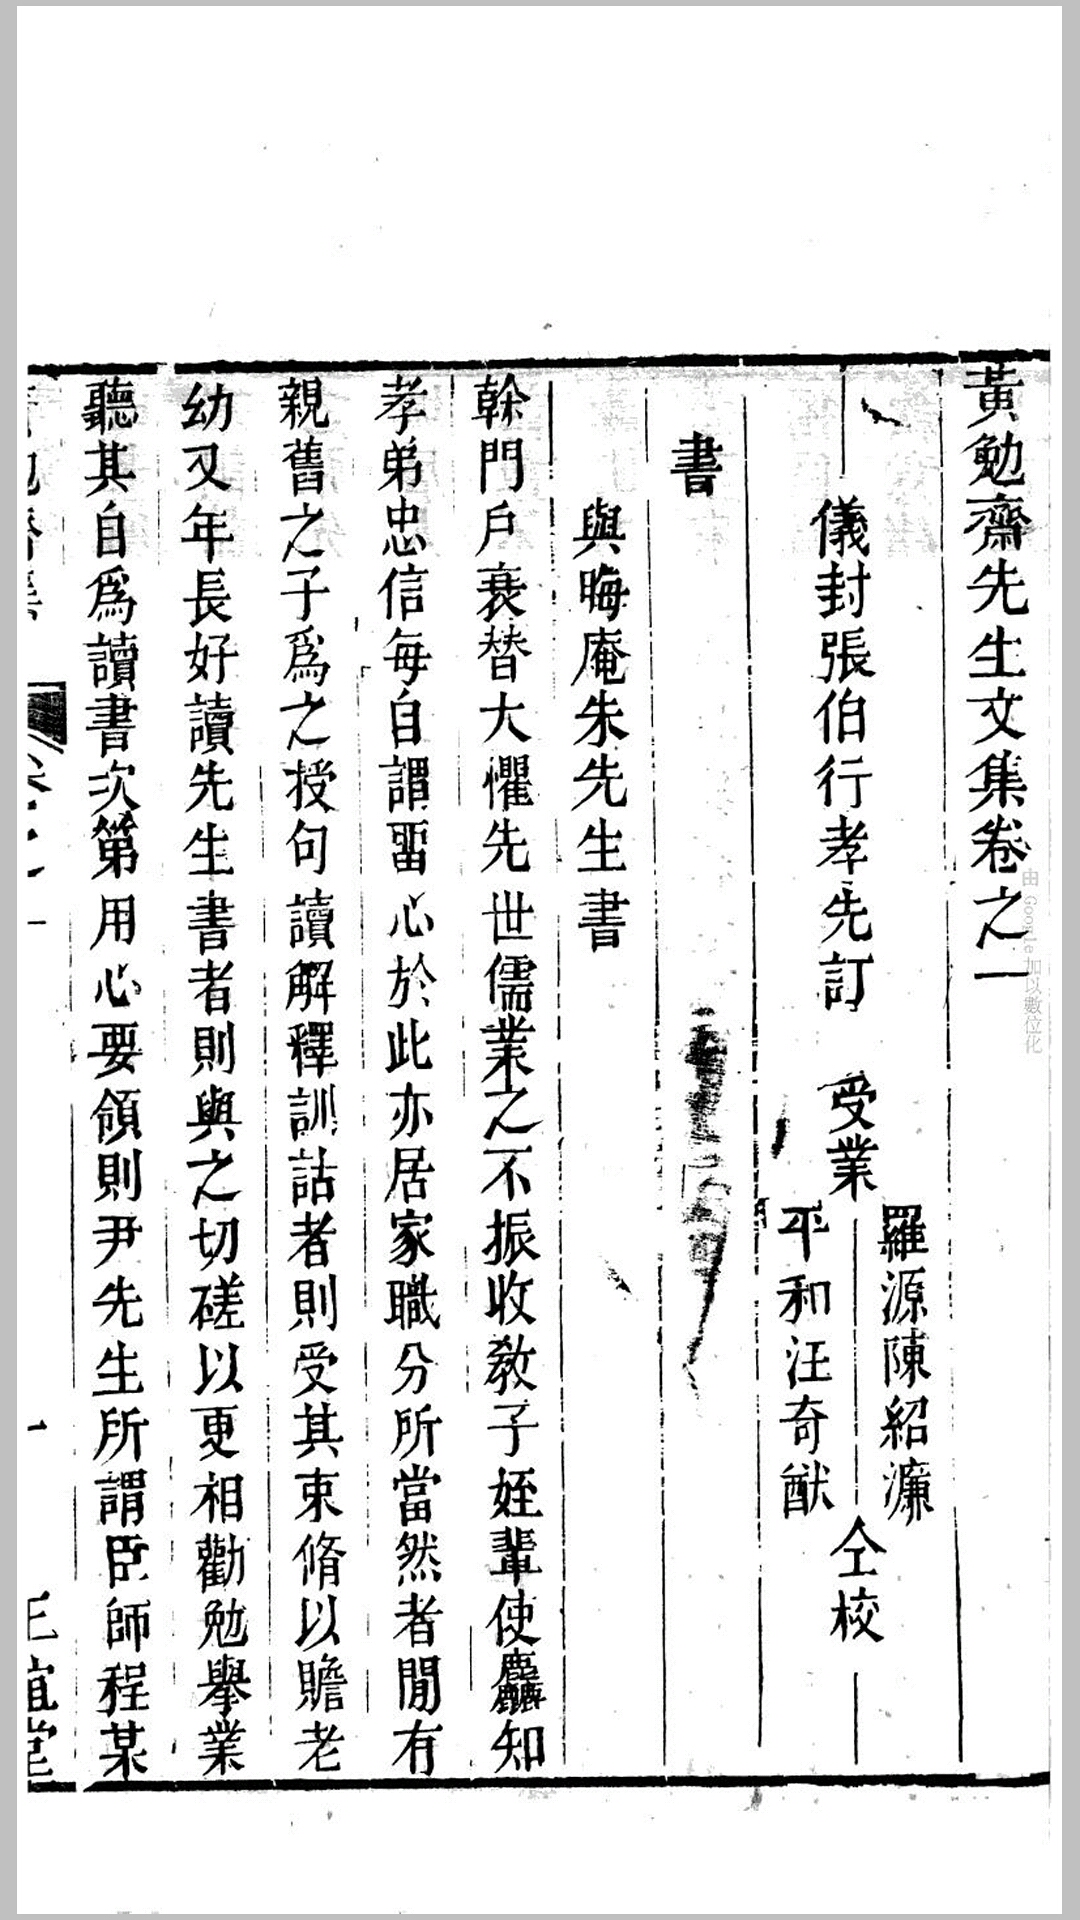 黃勉齋先生文集卷之一
儀封張伯行孝先訂　受業
羅源陳紹濂
平和汪奇猷
仝校
書
與晦庵朱先生書
榦門戶衰替大懼先世儒業之不振收敎子姪輩使麤知
孝弟忠信每自謂畱心於此亦居家職分所當然者閒有
親舊之子爲之授句讀解釋訓詁者則受其束脩以贍老
幼又年長好讀先生書者則與之切磋以更相勸勉舉業
聽其自爲讀書次第用心要領則尹先生所謂臣師程某
卷之一
一
正誼堂
由 Google 加以數位化